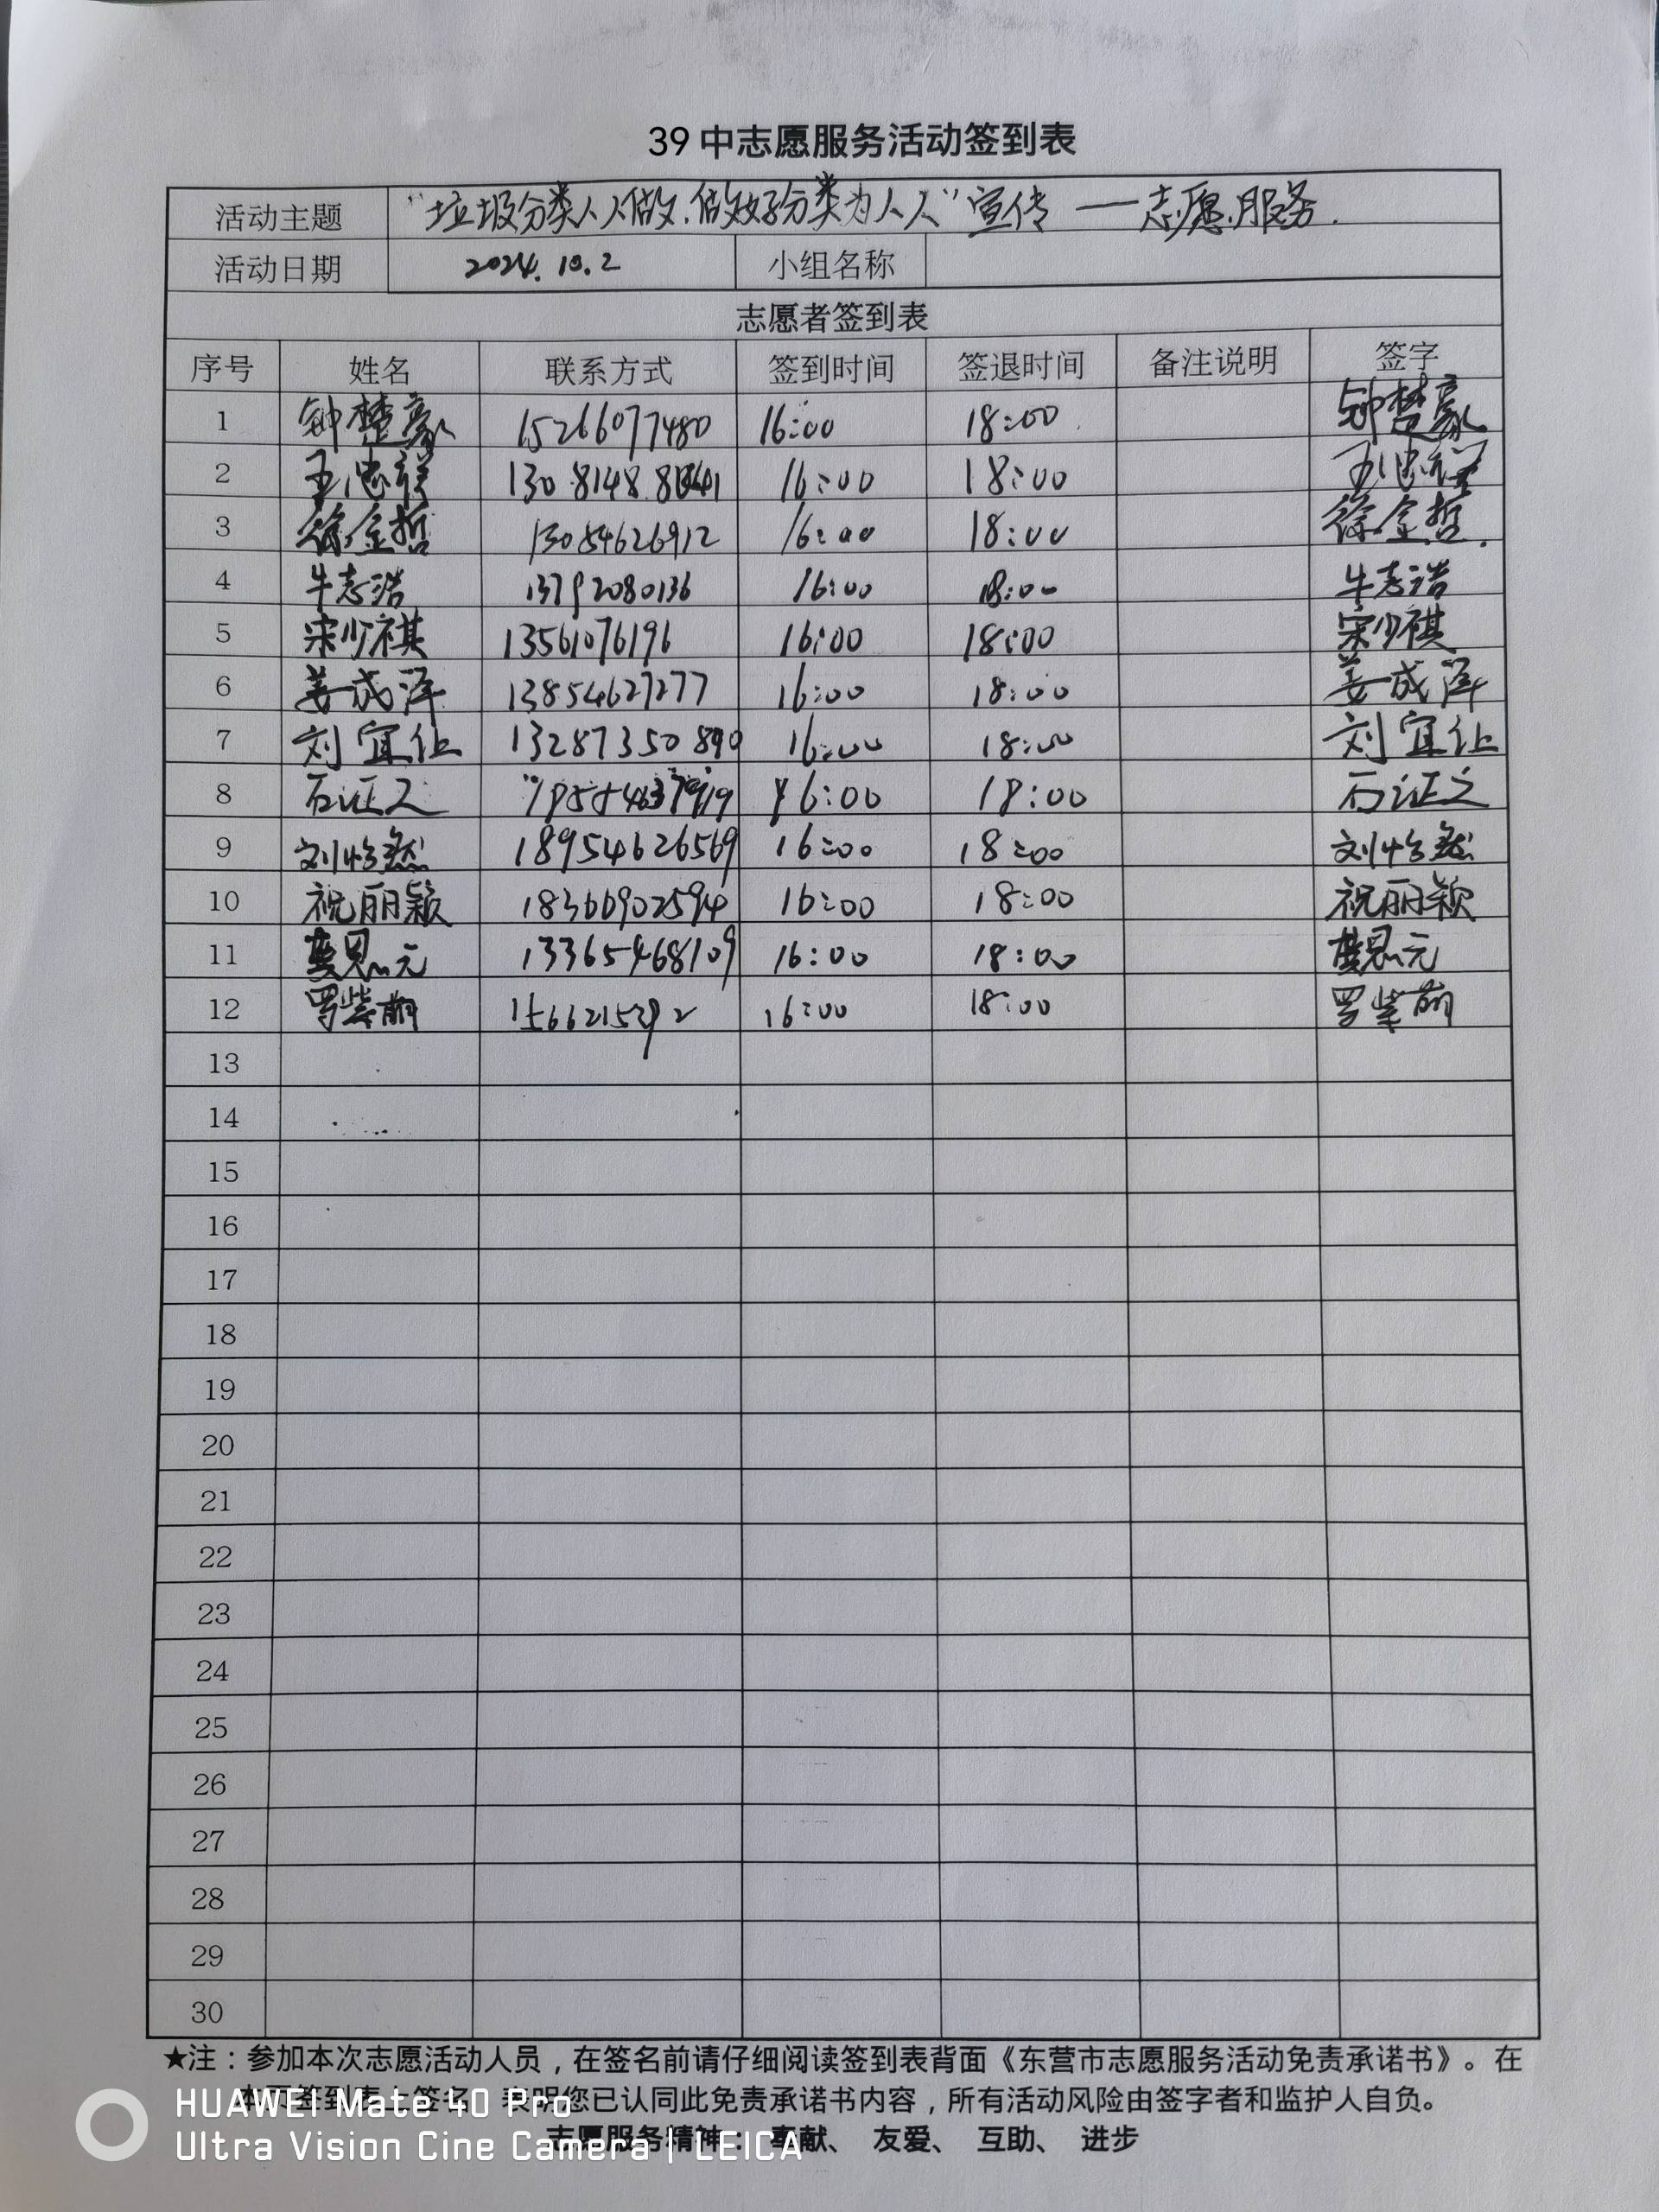 39中志愿服务活动签到表
活动主题 “垃圾分类人人做,做好分类为人人”宣传 — 志愿服务.
活动日期 2024.10.2 小组名称
志愿者签到表
序号 姓名 联系方式 签到时间 签退时间 备注说明 签字
1 钟楚豪 15266077480 16:00 18:00 钟楚豪
2 王忠祥 16:00 18:00 王忠祥
3 徐金哲 13054626912 16:00 18:00 徐金哲.
4 牛志浩 13792080136 16:00 18:00 牛志浩
5 宋少祺 13561076196 16:00 18:00 宋少祺
6 姜成泽 13854627277 16:00 18:00 姜成泽
7 刘宜让 13287350890 16:00 18:00 刘宜让
8 石证之 16:00 18:00 石证之
9 刘怡然 18954626569 16:00 18:00 刘怡然
10 祝丽颖 18366902594 16:00 18:00 祝丽颖
11 13365468109 16:00 18:00
12 罗紫萌 16:00 18:00 罗紫萌
13
14
15
16
17
18
19
20
21
22
23
24
25
26
27
28
29
30
★注：参加本次志愿活动人员，在签名前请仔细阅读签到表背面《东营市志愿服务活动免责承诺书》。在
本页签到表上签名，表明您已认同此免责承诺书内容，所有活动风险由签字者和监护人自负。
志愿服务精神：奉献、 友爱、 互助、 进步
HUAWEI Mate 40 Pro
Ultra Vision Cine Camera | LEICA